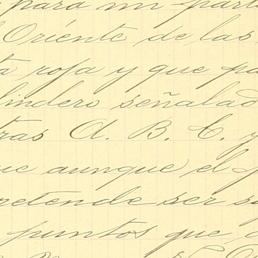 para mi part
Oriente de las
ta roja y que pa
lindero señalad
tras A. B. C. y
ue aunque el p
retende ser su
puntos que